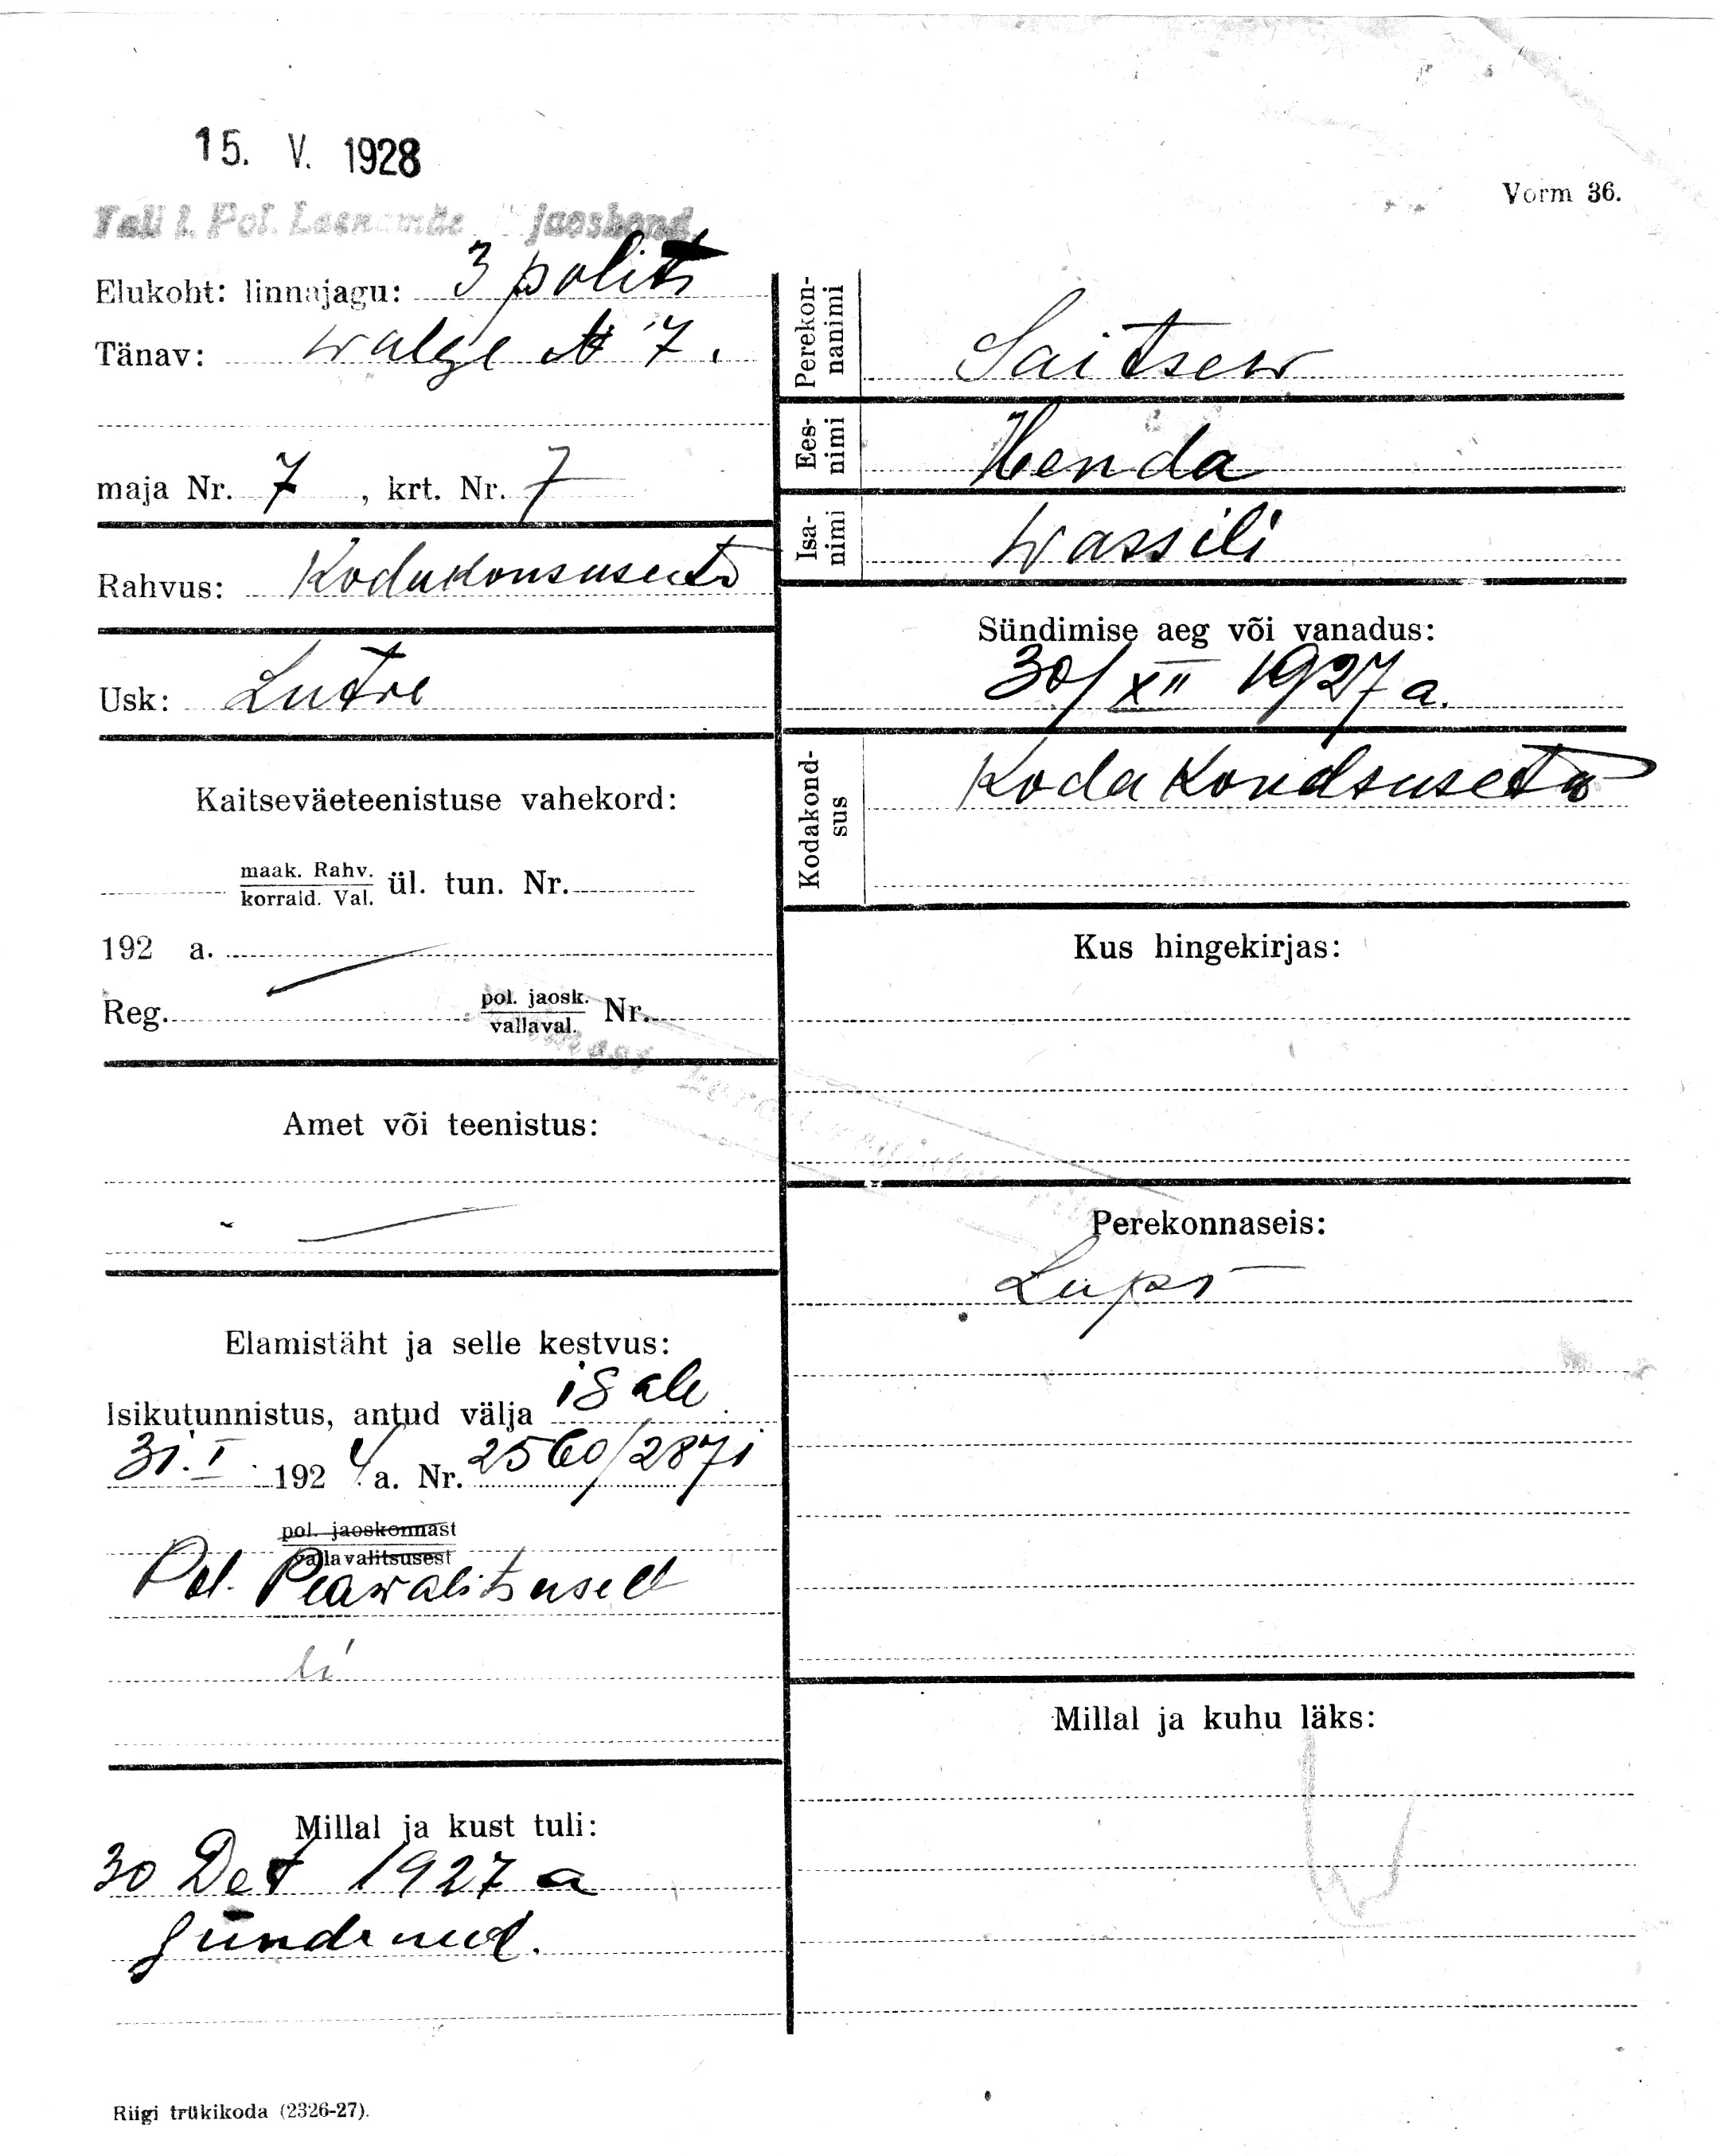 15. V. 1928
Vorm 36.
Tall. l. Pol. Lasnamäe jaoskond.
Elukoht: linnajagu: 3 polits
Tänav: Walge № 7.
maja Nr. 7, krt. Nr. 7
Rahvus: Kodakonsuseta
Usk: Lutre
Kaitseväeteenistuse vahekord:
maak. Rahv.
korrald. Val. ül. tun. Nr.
192 a.
Reg. pol. jaosk.
vallaval. Nr.
Amet või teenistus:
Elamistäht ja selle kestvus:
Isikutunnistus, antud välja isale
31. I 1924 a. Nr. 2560/2871
pol. jaoskonnast
vallavalitsusest
Pol. Peawalitsuselt
Millal ja kust tuli:
30 Det 1927 a
sündinud.
Perekonnanimi Saitsew
Eesnimi Henda
Isanimi Wassili
Sündimise aeg või vanadus:
30/XII 1927 a.
Kodakondsus Kodakondsuseta
Kus hingekirjas:
Perekonnaseis:
Laps
Millal ja kuhu läks:
Riigi trükikoda (2326-27).